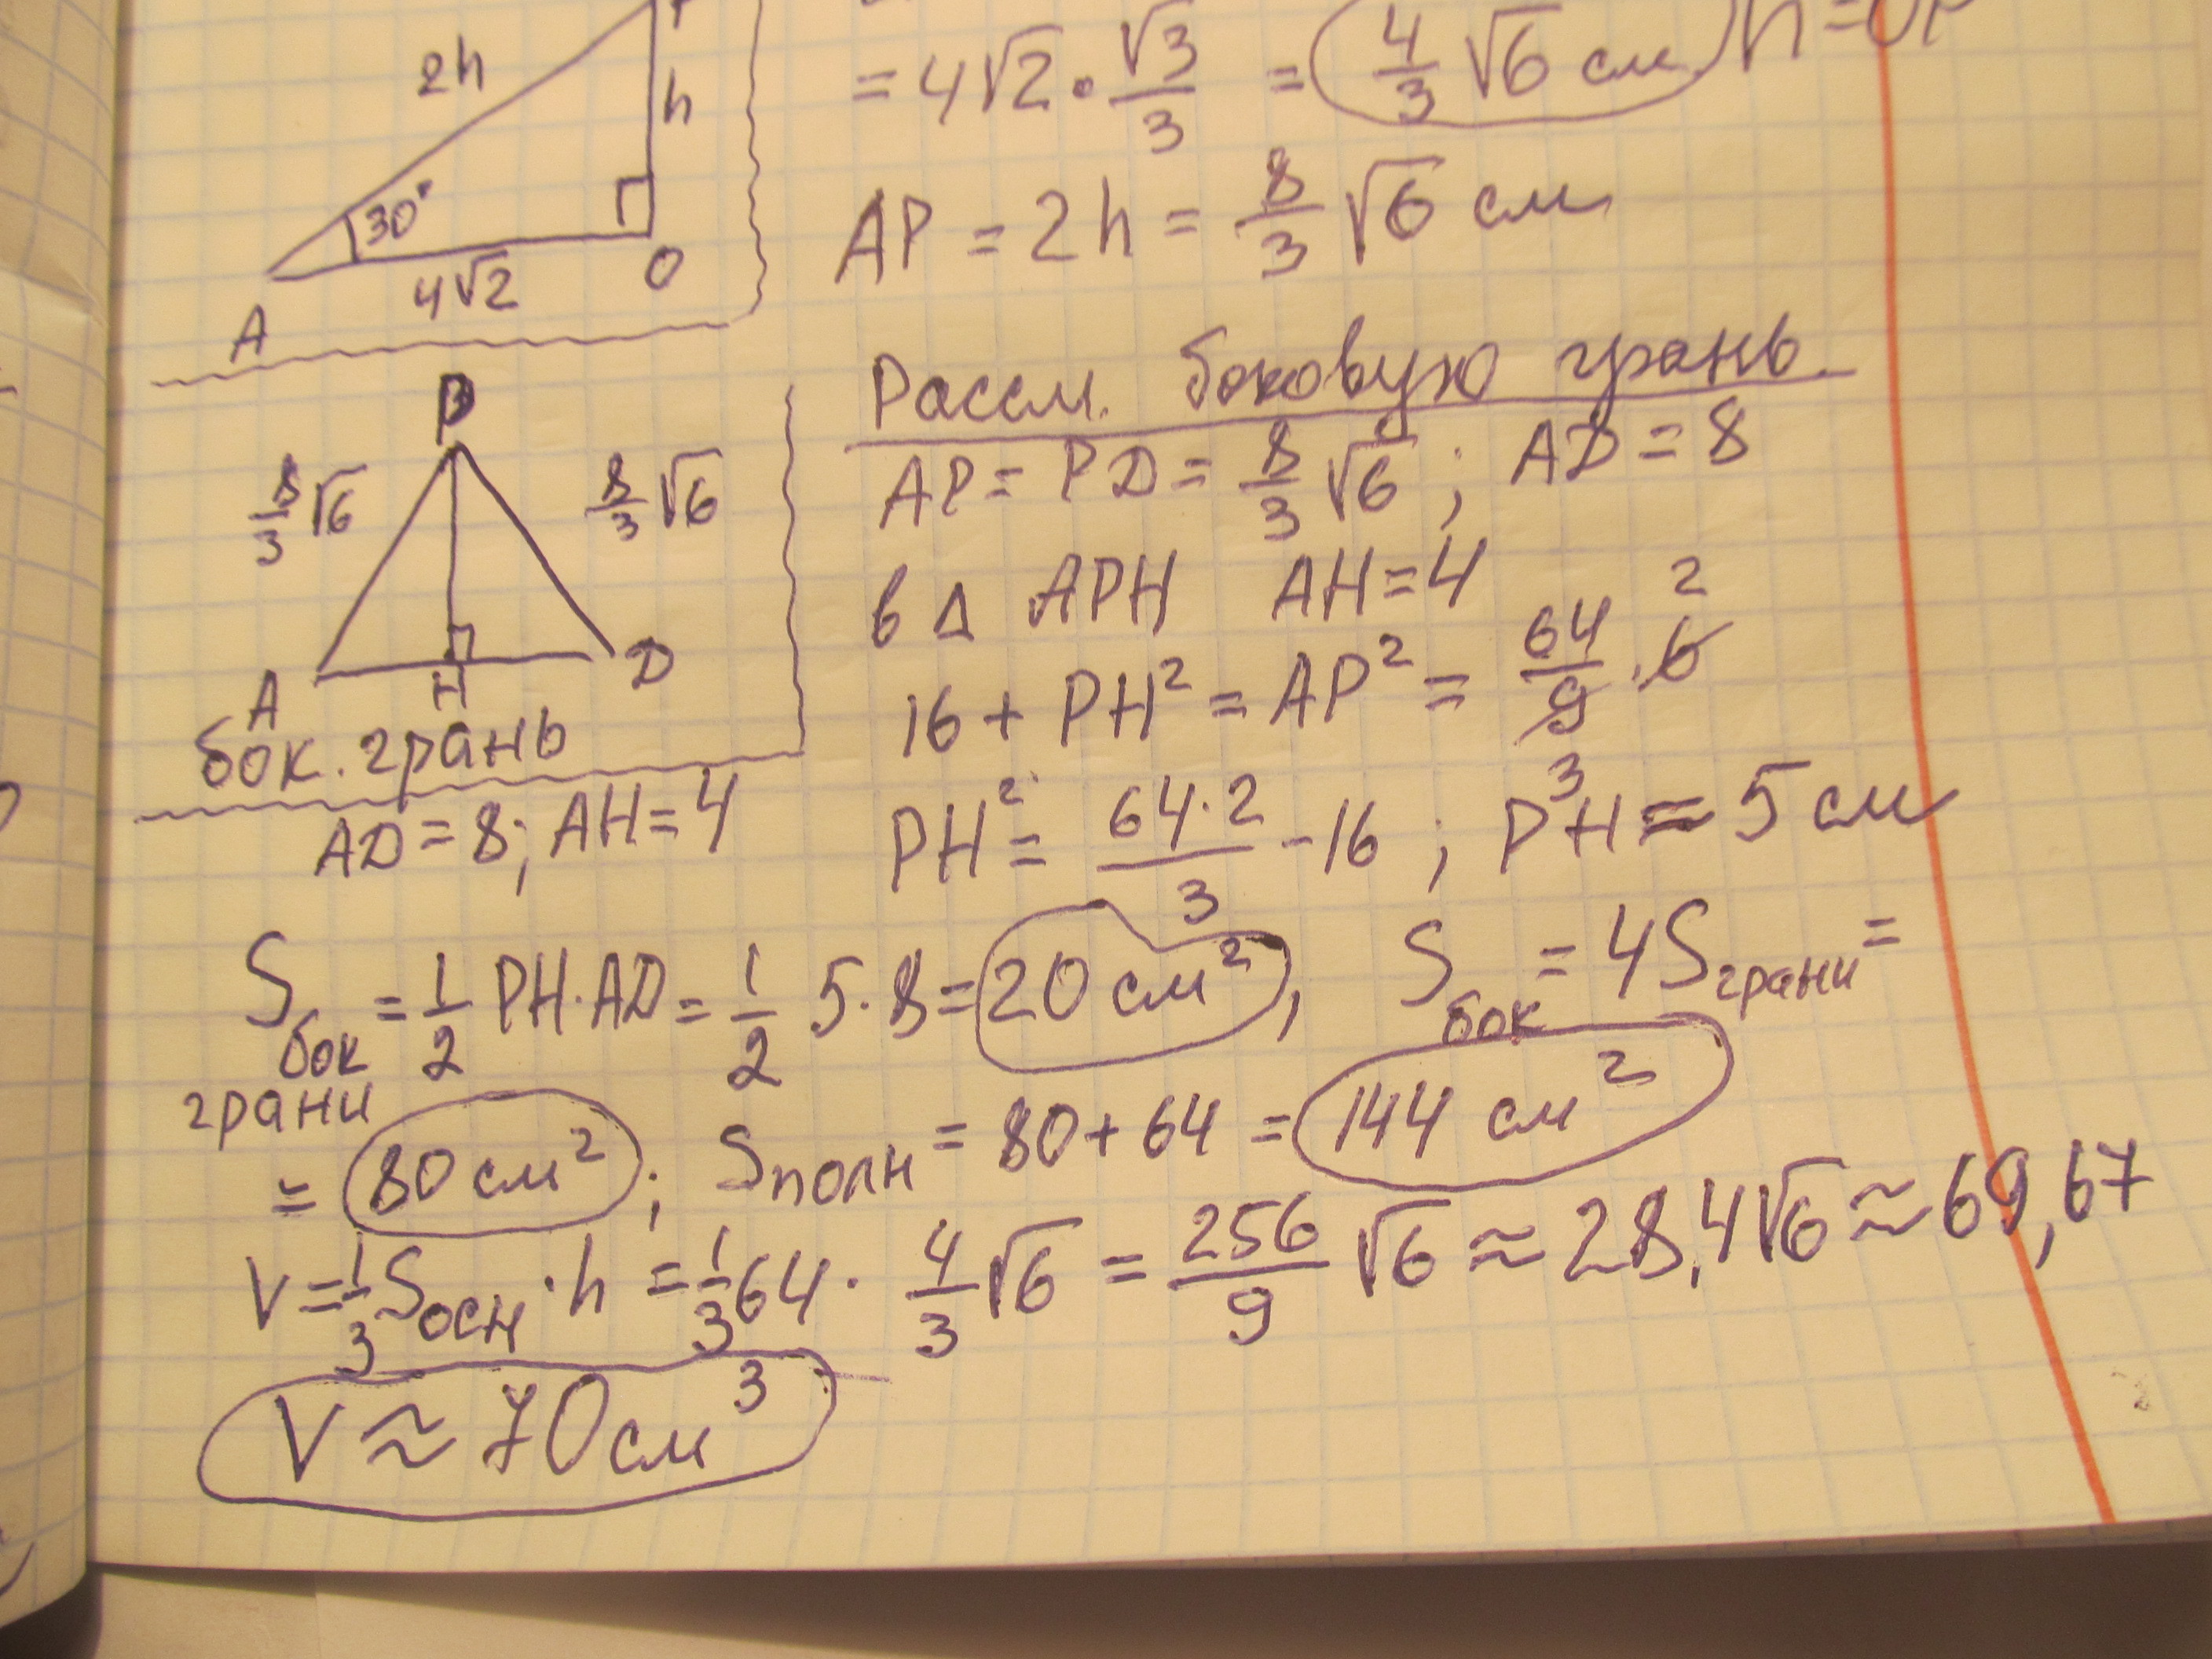 2h
h
30°
4√2
O
A
= 4√2 · √3/3 = 4/3 √6 см
AP = 2h = 8/3 √6 см
P
8/3 √6
8/3 √6
A
H
D
бок. грань
AD = 8; AH = 4
Рассм. боковую грань.
AP = PD = 8/3 √6 ; AD = 8
в Δ APH AH = 4
16 + PH² = AP² = 64/9 · 6 2
3
PH² = 64·2/3 - 16 ; PH = 5 см
S бок грани = 1/2 PH·AD = 1/2 5·8 = 20 см², S бок = 4S грани =
= 80 см² ; S полн = 80 + 64 = 144 см²
V = 1/3 S осн · h = 1/3 64 · 4/3 √6 = 256/9 √6 ≈ 28,4√6 ≈ 69,67
V ≈ 70 см³